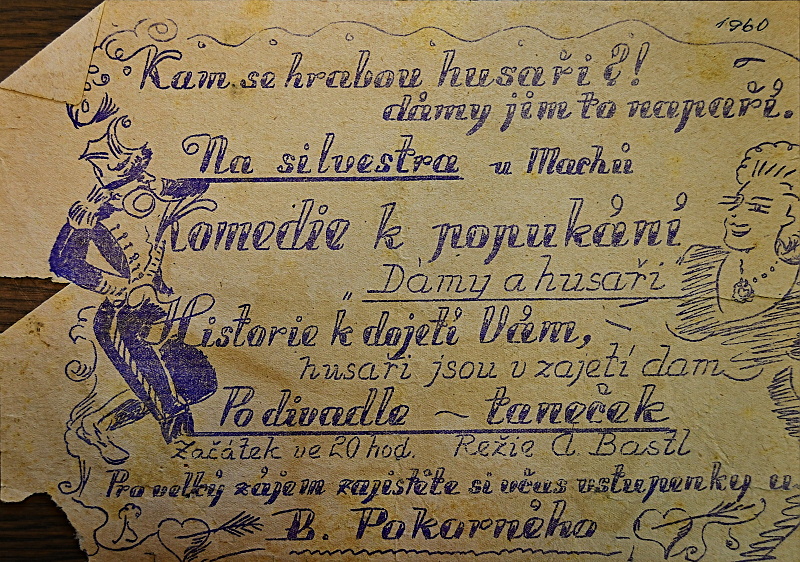 1960
Kam se hrabou husaři?!
dámy jim to napaří.
Na silvestra u Machů
Komedie k popukání
"Dámy a husaři"
Historie k dojetí Vám,
husaři jsou v zajetí dam
Po divadle - taneček
Začátek ve 20 hod. Režie A Bastl
Pro velký zájem zajistěte si včas vstupenky u
B. Pokorného